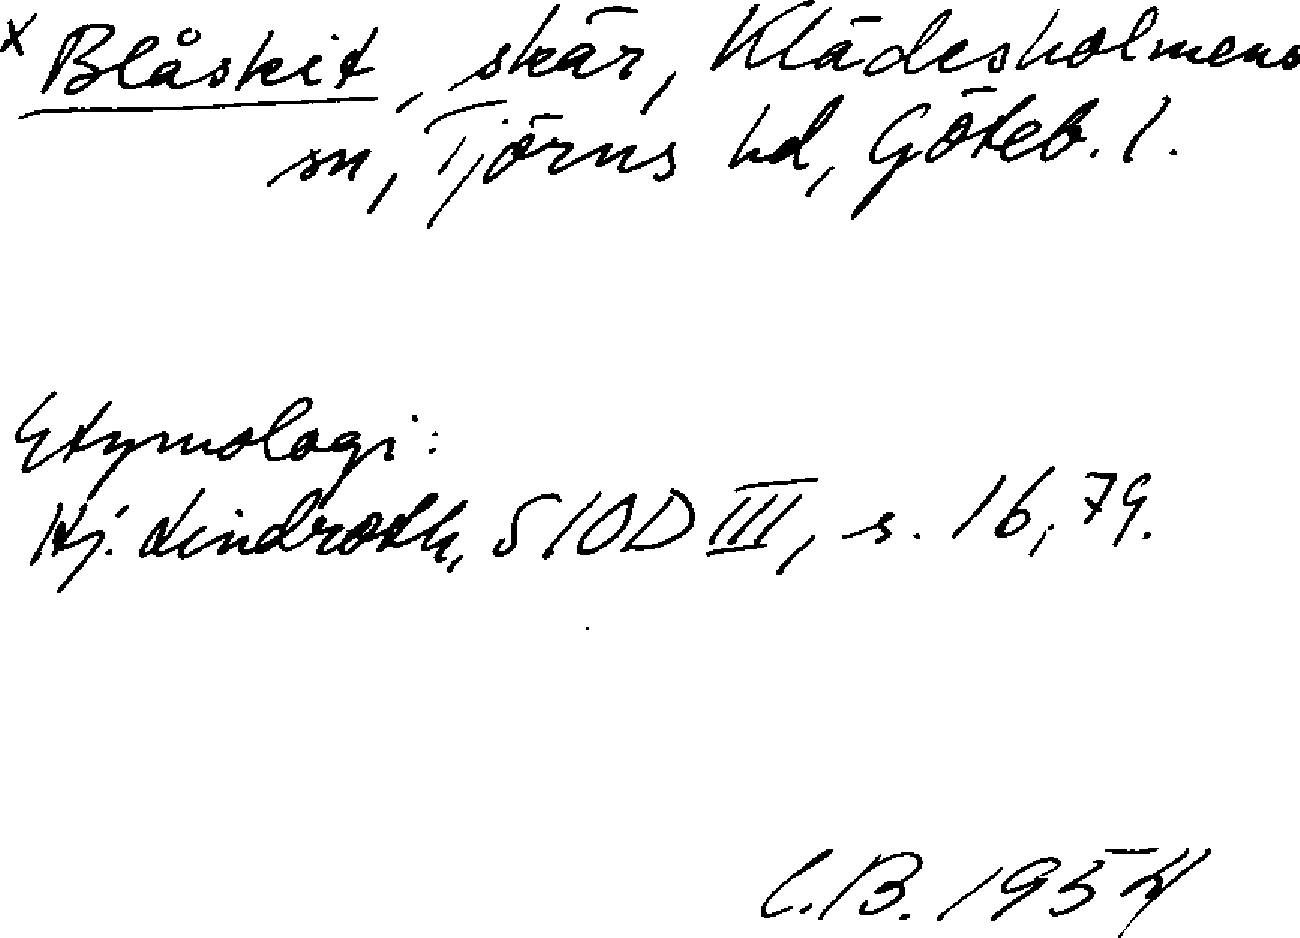 x Blåskit, skär, Klädesholmens
sn, Tjörns hd, Göteb. l.
Etymologi:
Hj. Lindroth, SIOD III, s. 16, 79.
C.B. 1954